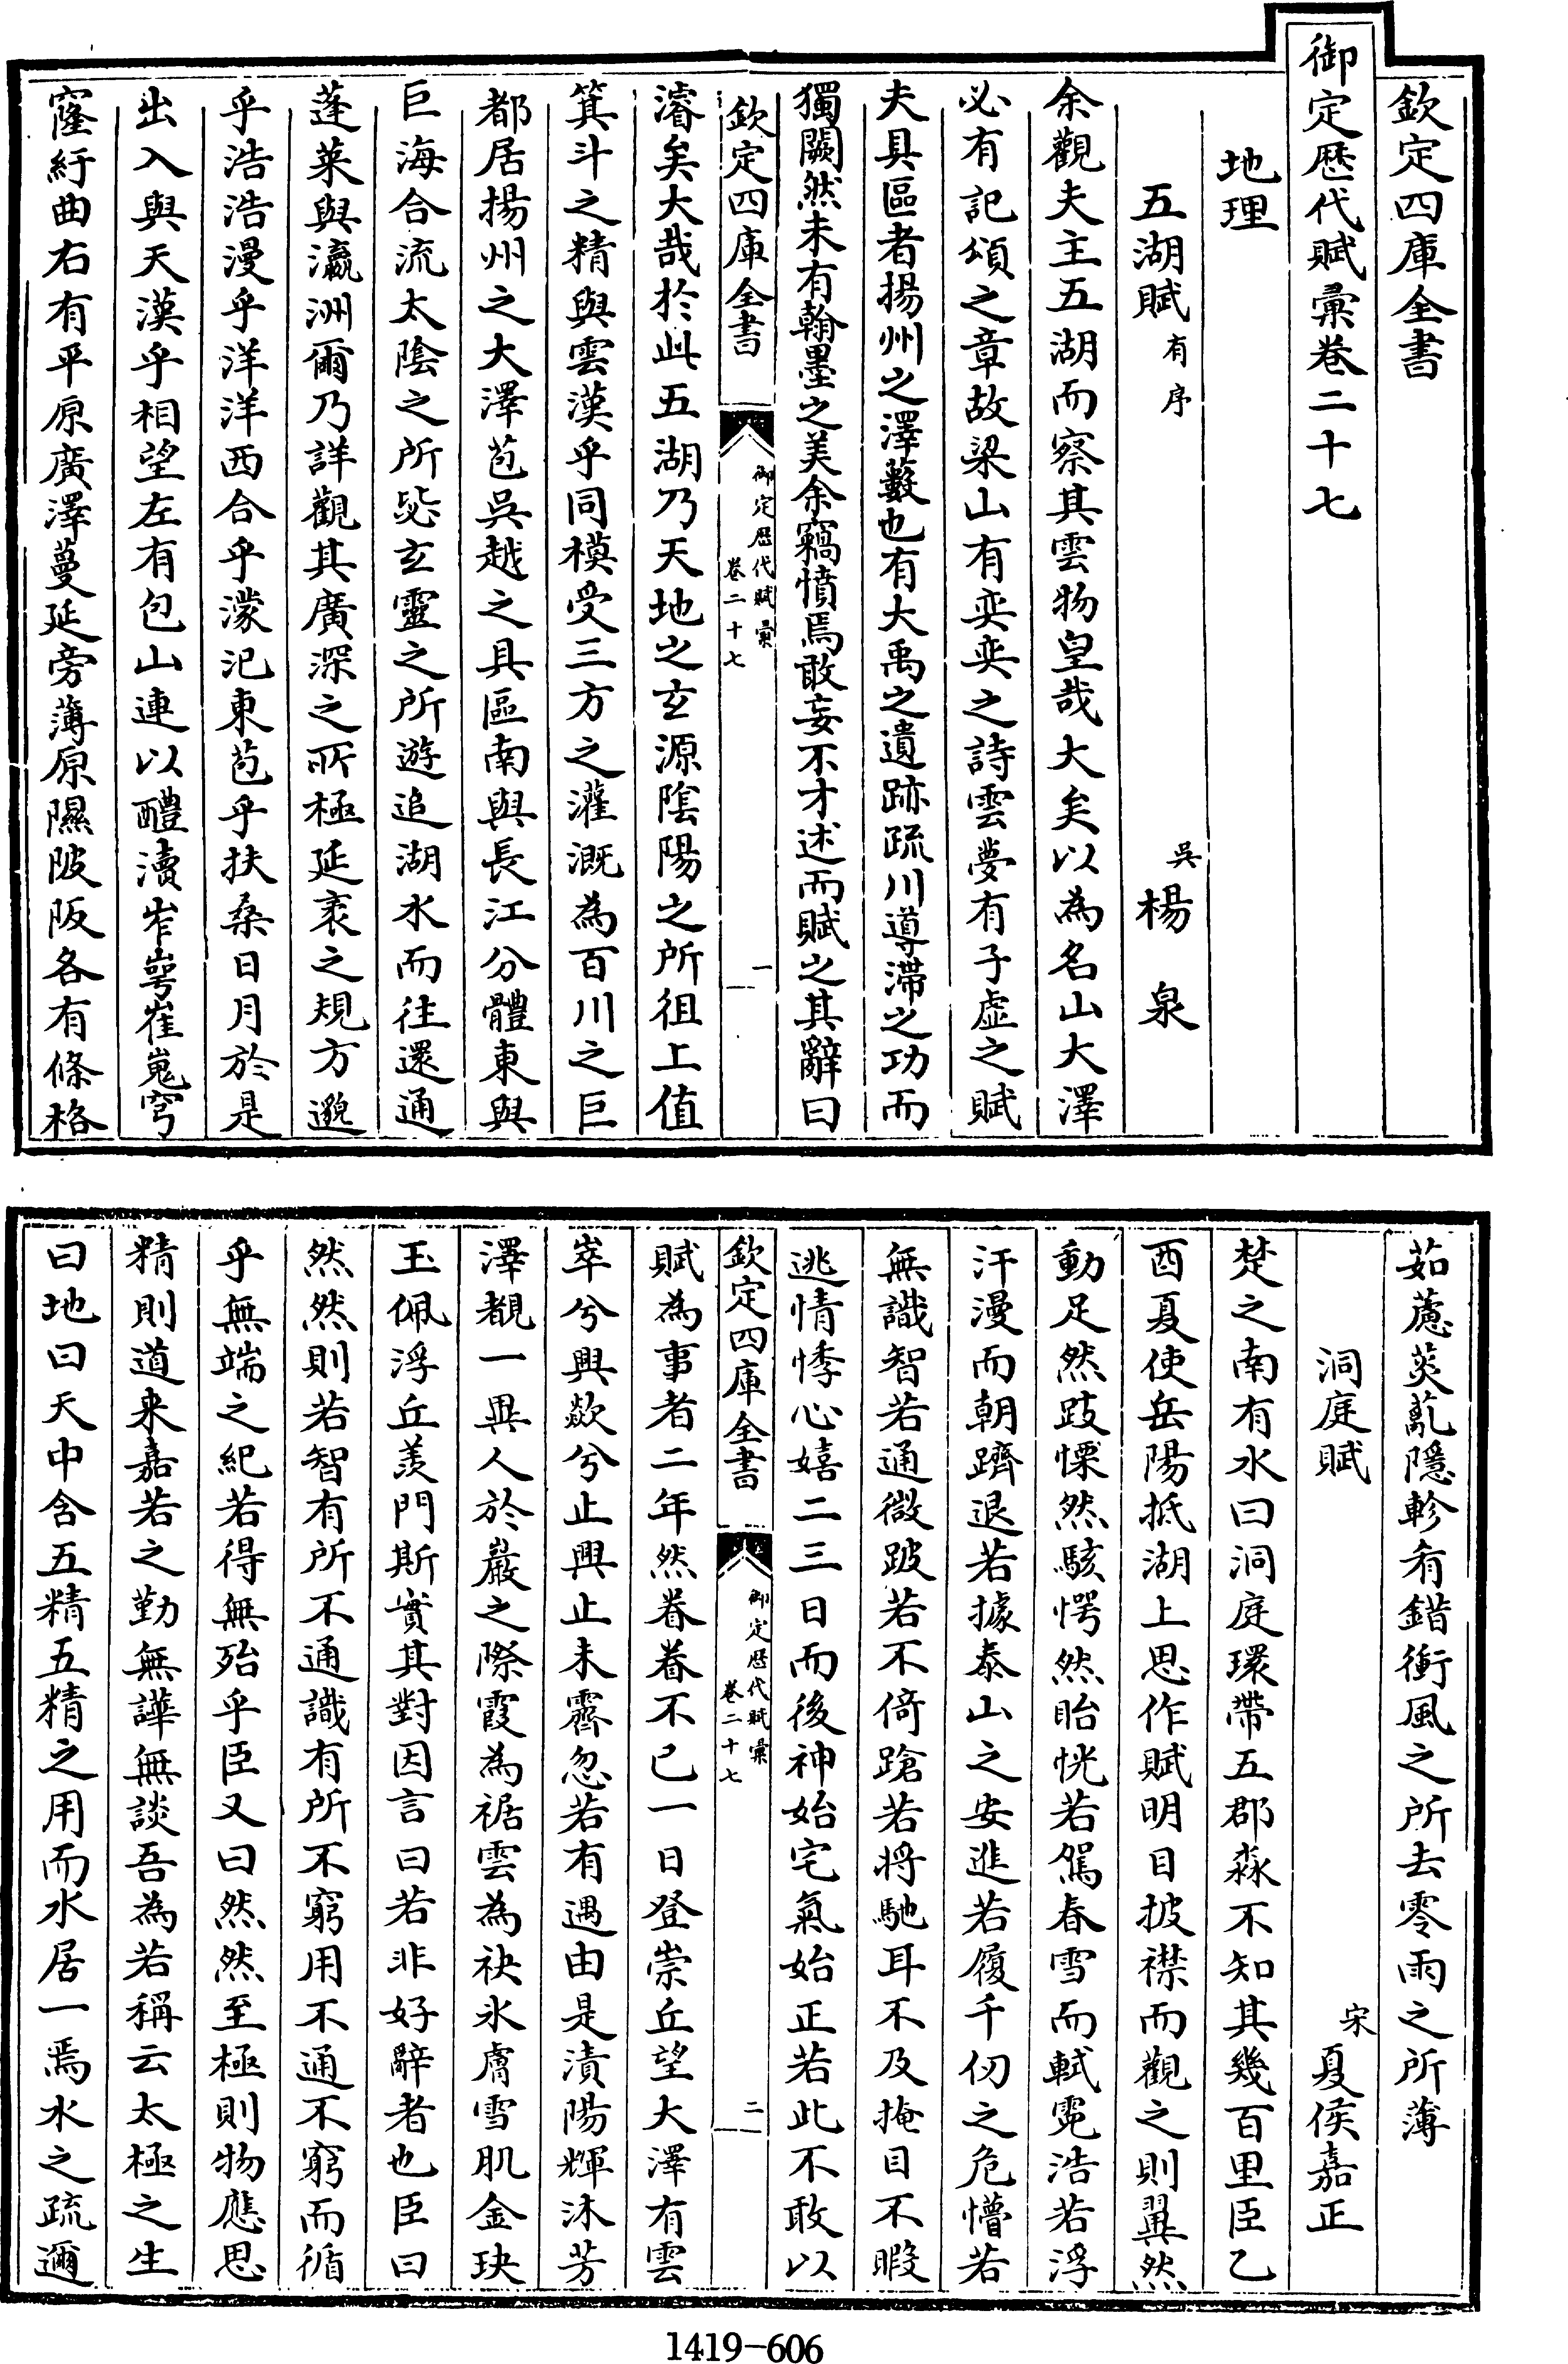 欽定四庫全書
御定歷代賦彙卷二十七
地理
五湖賦有序
吳楊泉
余觀夫主五湖而察其雲物皇哉大矣以為名山大澤
必有記頌之章故梁山有奕奕之詩雲夢有子虛之賦
夫具區者揚州之澤藪也有大禹之遺跡疏川導滯之功而
獨闕然未有翰墨之美余竊憤焉敢妄不才述而賦之其辭曰
欽定四庫全書
御定歷代賦彙
卷二十七
一
濬矣大哉於此五湖乃天地之玄源隂陽之所徂上值
箕斗之精與雲漢乎同模受三方之灌溉為百川之巨
都居揚州之大澤苞吳越之具區南與長江分體東與
巨海合流太陰之所毖玄靈之所遊追湖水而往還通
蓬萊與瀛洲爾乃詳觀其廣深之所極延袤之規方邈
乎浩浩漫乎洋洋西合乎濛汜東苞乎扶桑日月於是
出入與天漢乎相望左有包山連以醴瀆岝㟧崔嵬穹
窿紆曲右有平原廣澤蔓延旁薄原隰陂阪各有條格
茹蘆菼薍隱軫肴錯衝風之所去零雨之所薄
洞庭賦
宋夏侯嘉正
楚之南有水曰洞庭環帶五郡淼不知其幾百里臣乙
酉夏使岳陽抵湖上思作賦明日披襟而觀之則翼然
動足然跂慄然駭愕然眙恍若駕春雪而軾霓浩若浮
汗漫而朝躋退若據泰山之安進若履千仞之危懵若
無識智若通微跛若不倚蹌若将馳耳不及掩目不暇
逃情悸心嬉二三日而後神始宅氣始正若此不敢以
欽定四庫全書
御定歷代賦彙
卷二十七
二
賦為事者二年然眷眷不已一日登崇丘望大澤有雲
崒兮興歘兮止興止未霽忽若有遇由是漬陽輝沐芳
澤覩一異人於巖之際霞為裾雲為袂氷膚雪肌金玦
玉佩浮丘羨門斯實其對因言曰若非好辭者也臣曰
然然則若智有所不通識有所不窮用不通不窮而循
乎無端之紀若得無殆乎臣又曰然然至極則物應思
精則道来嘉若之勤無譁無談吾為若稱云太極之生
曰地曰天中含五精五精之用而水居一焉水之疏邇
1419-606